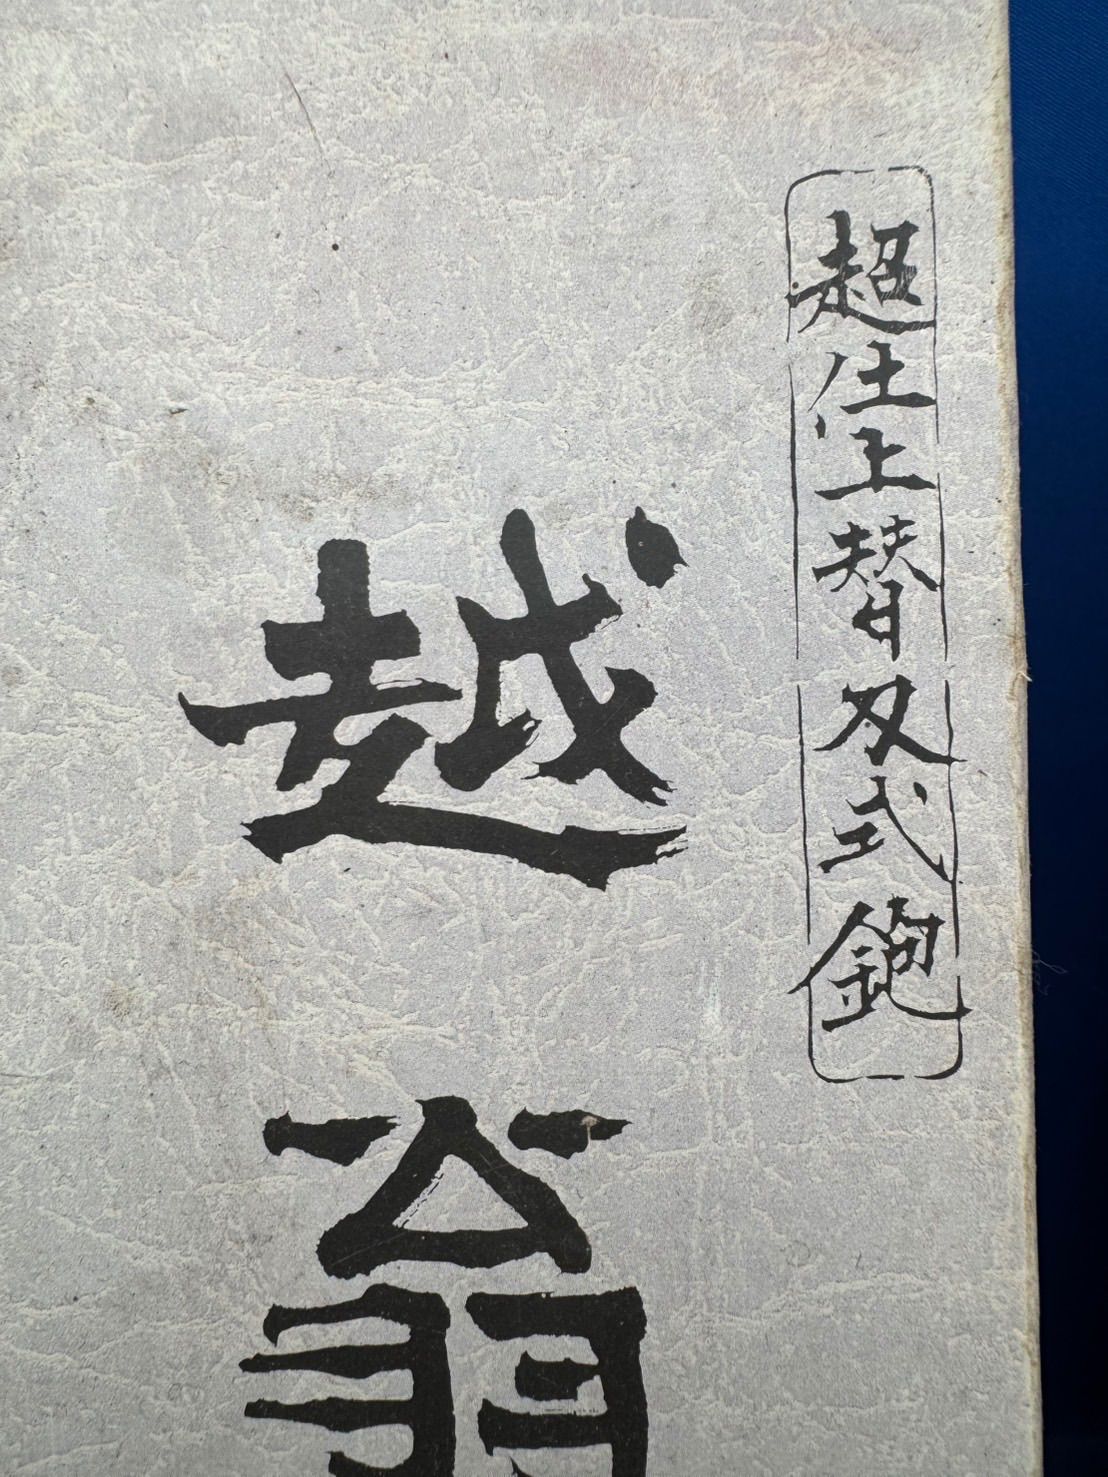 超仕上替刃式鉋
越翁